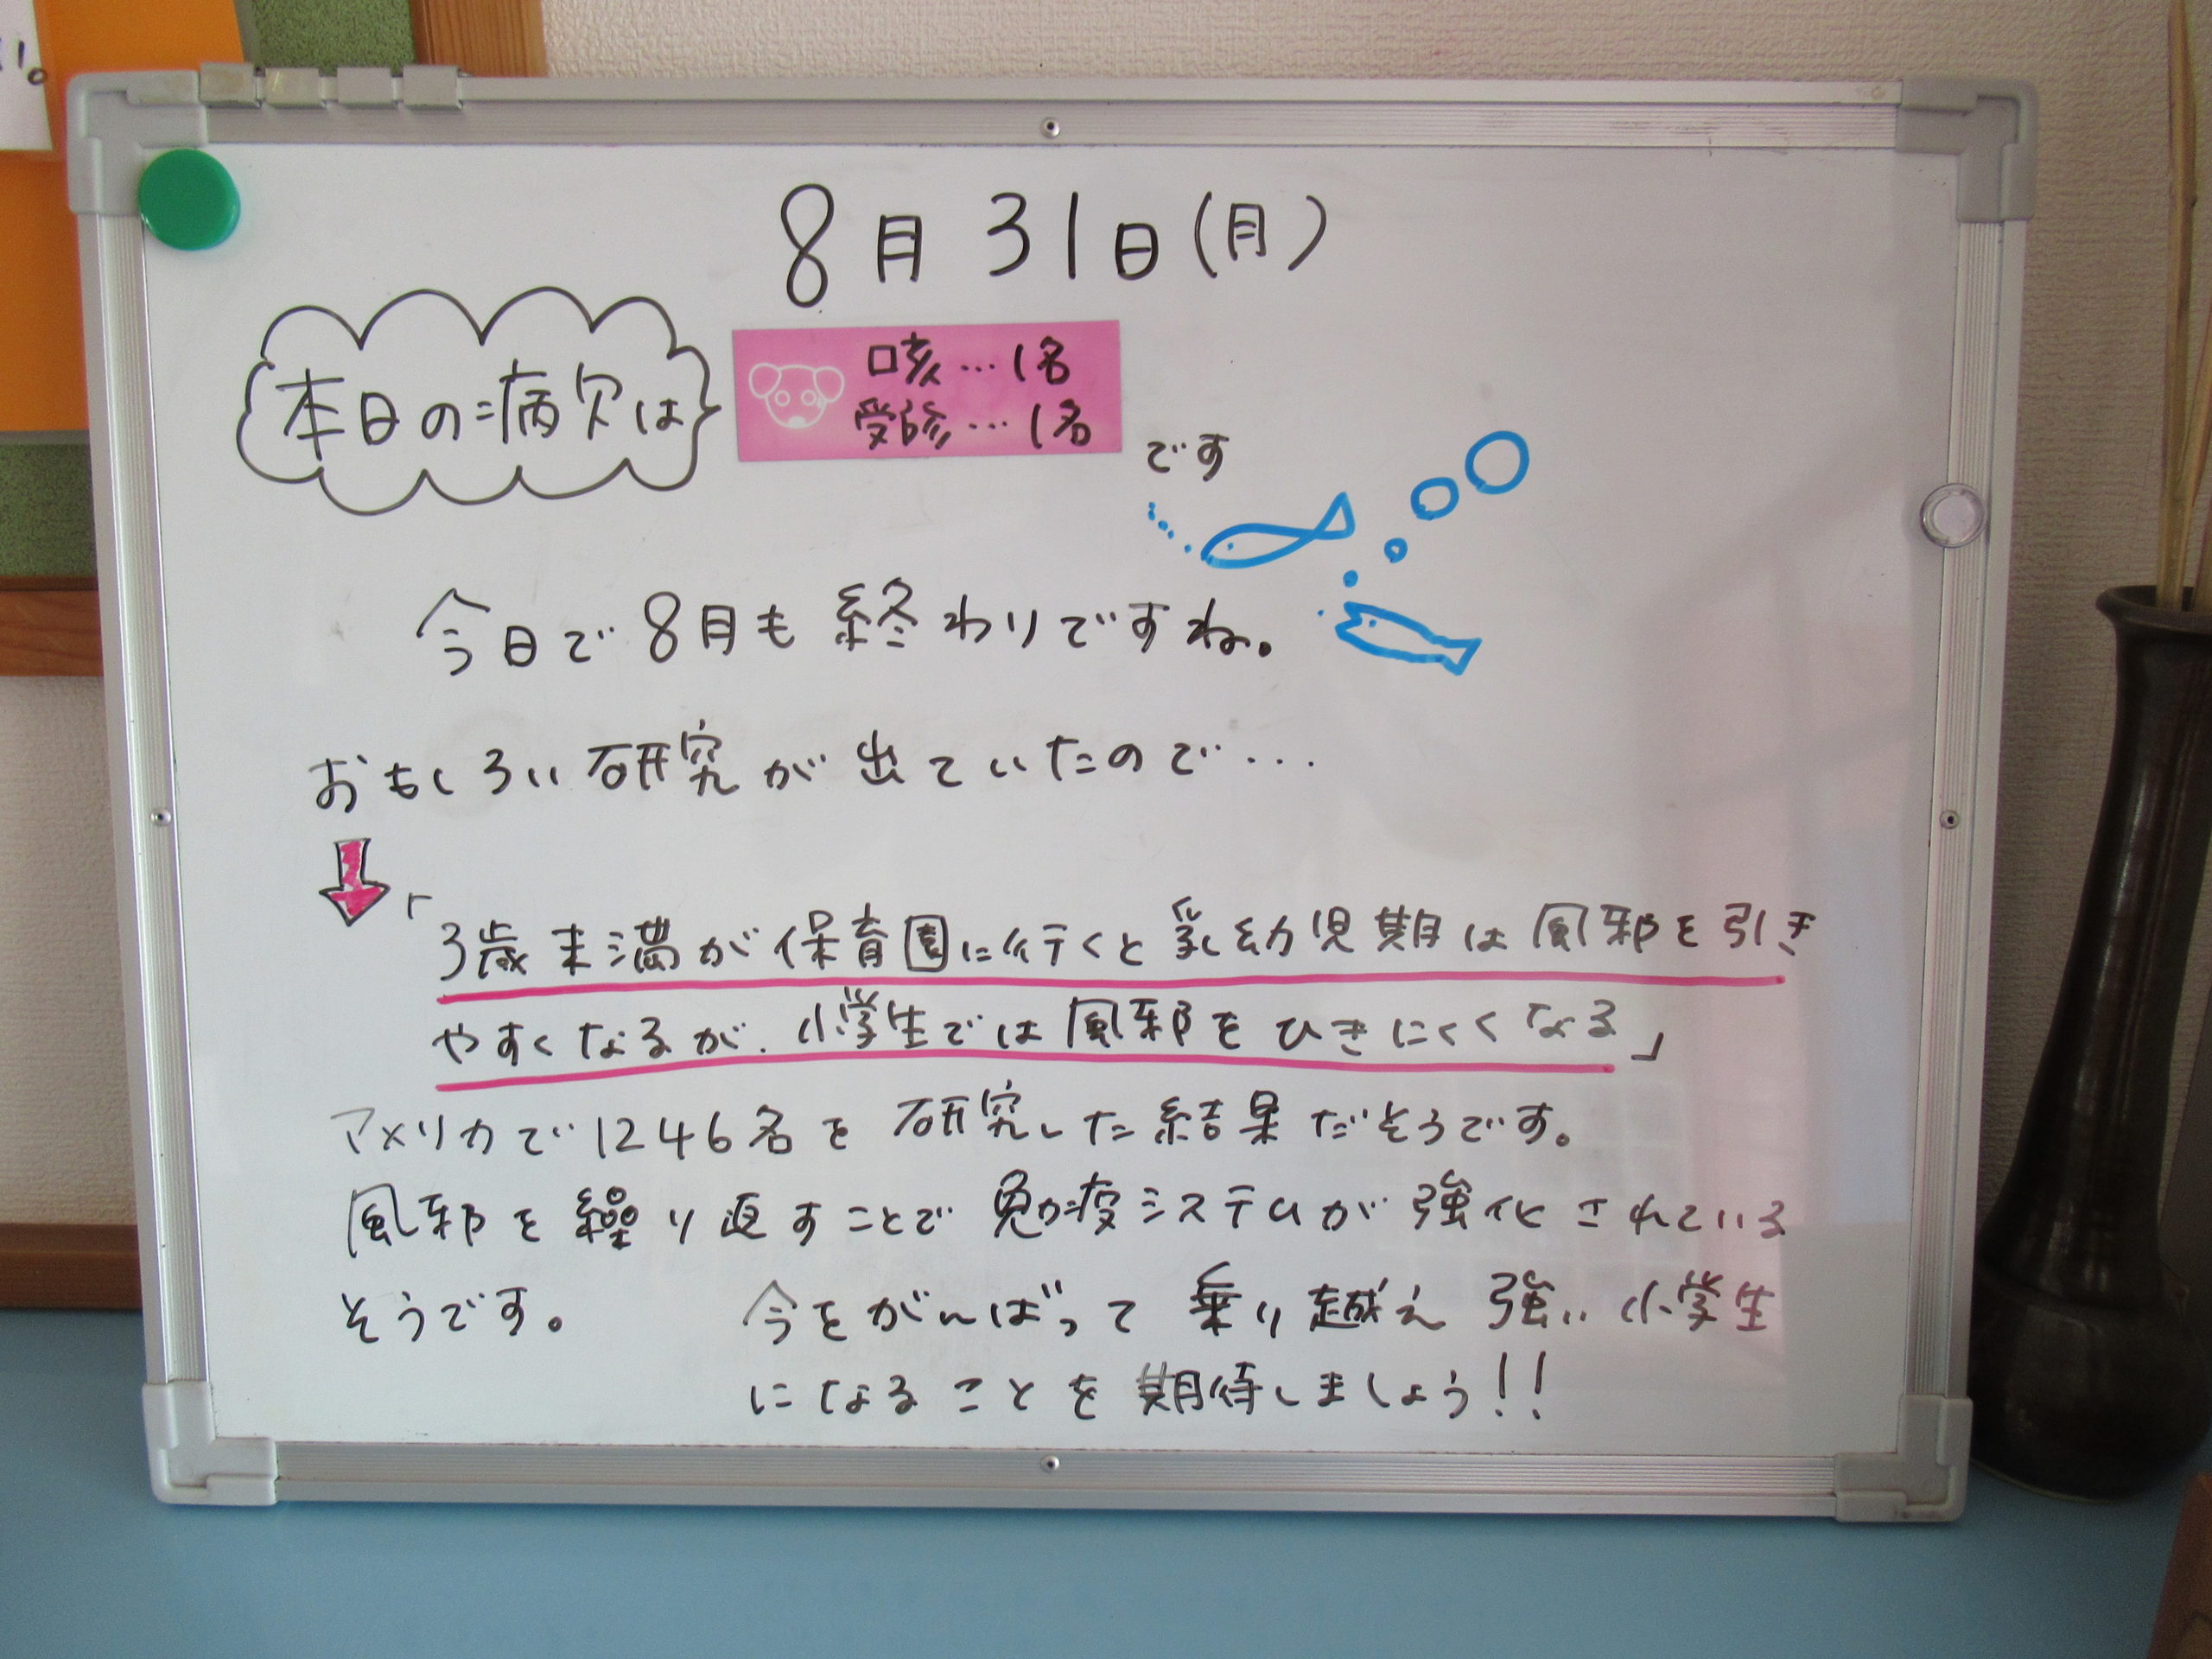 8月31日(月)
本日の病欠は
咳…1名
受診…1名
です
今日で8月も終わりですね。
おもしろい研究が出ていたので…
「3歳未満が保育園に行くと乳幼児期は風邪を引き
やすくなるが、小学生では風邪をひきにくくなる」
アメリカで1246名を研究した結果だそうです。
風邪を繰り返すことで免疫システムが強化されている
そうです。 今をがんばって乗り越え強い小学生
になることを期待しましょう!!